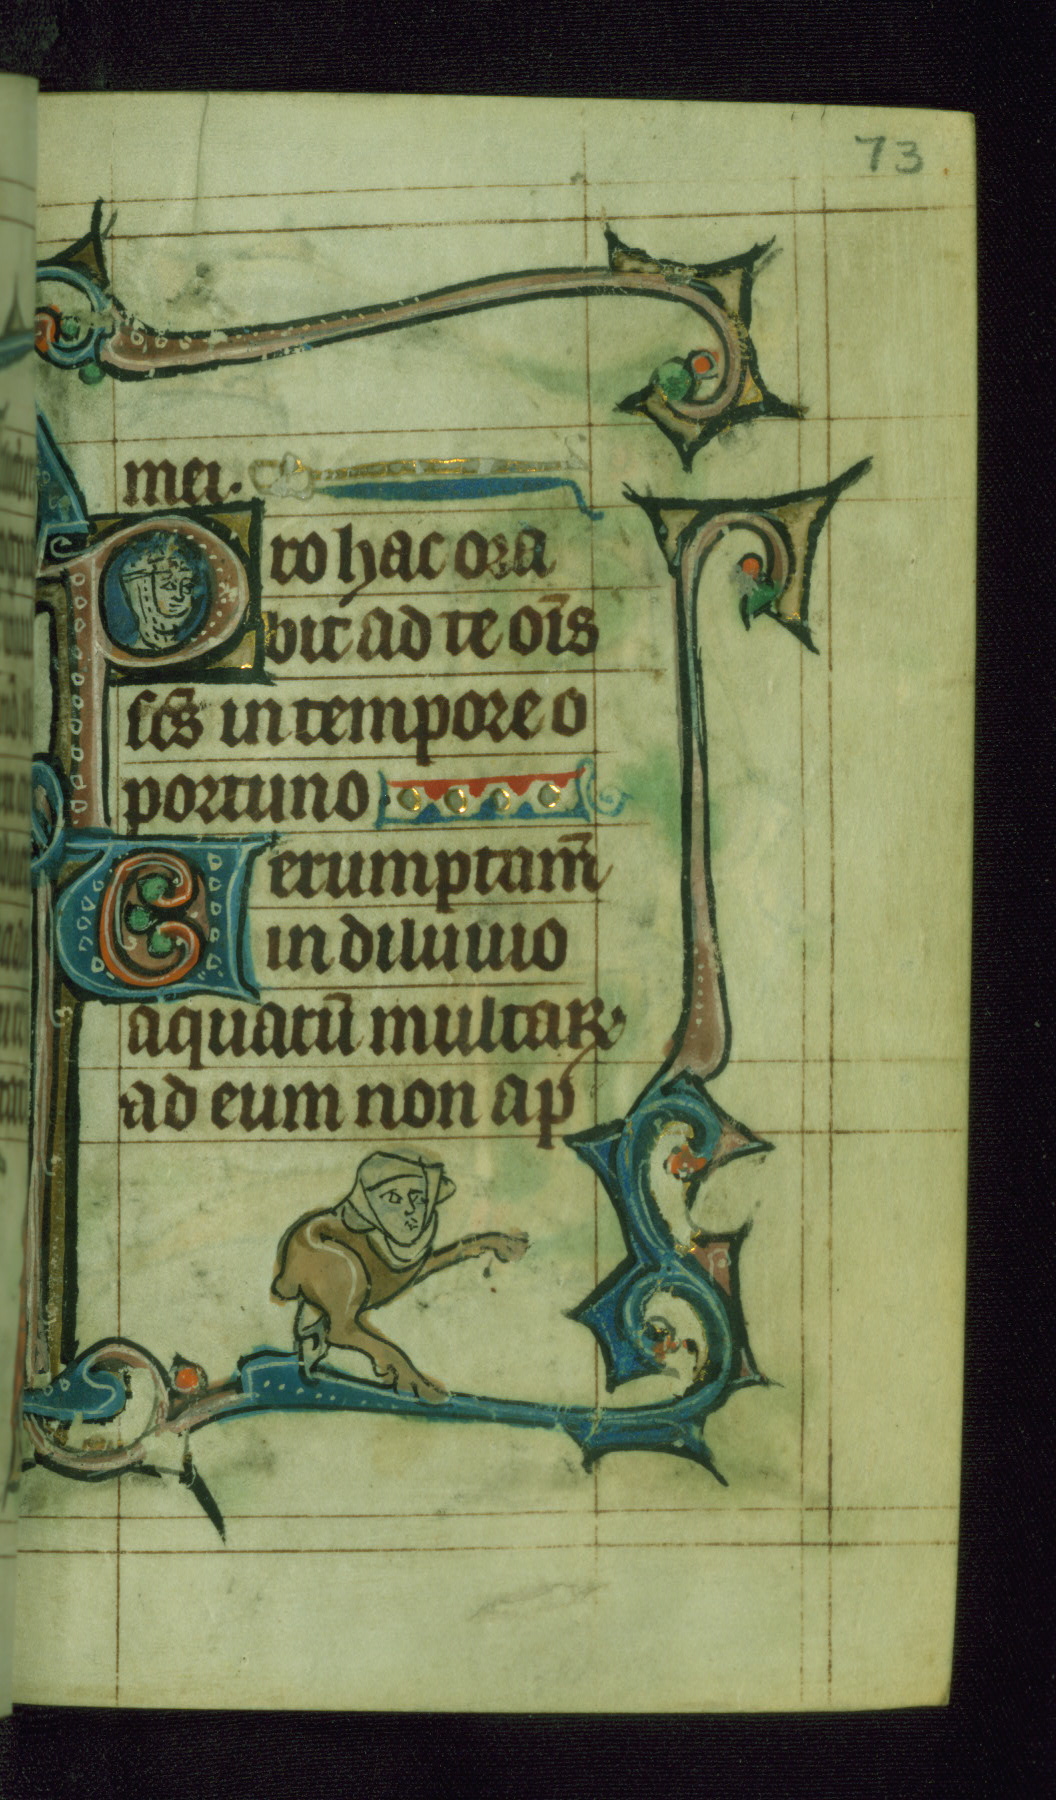 73
mei.
Pro hac ora
bit ad te oı̄s
sc̄s in tempore o
portuno
Uerumptam̄
in diluuio
aquaru̅ multaꝝ
ad eum non ap